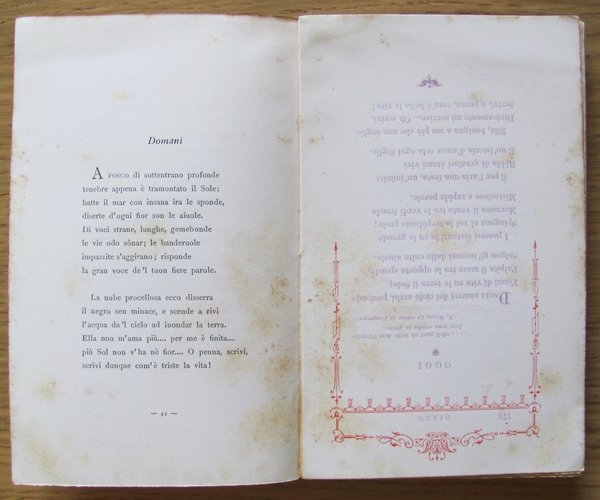 Domani
A ROSCO di sottentrano profonde
tenebre appena è tramontato il Sole:
batte il mar con insana ira le sponde,
diserte d'ogni fior son le aiuole.
Di voci strane, lunghe, gemebonde
le vie odo sônar; le banderuole
impazzite s'aggirano; risponde
la gran voce de'l tuon fiere parole.
La nube procellosa ecco disserra
il negro sen minace, e scende a rivi
l'acqua da'l cielo ad inondar la terra.
Ella non m'ama più.... per me è finita....
più Sol non v'ha nè fior.... O penna, scrivi,
scrivi dunque com'è triste la vita!
— 42 —
178
OGGI
DAGLI azzurri del cielo archi profondi,
di vita su la terra il Sole;
Palpita il mare tra le opposte sponde,
Salgon gl'incensi dalle culte aiuole.
I passeri festanti in su le gronde
Spingono al vol la trepidante prole;
Mormora il vento tra le verdi fronde
Misteriose e rapide parole.
E per l'aria una festa, un infinita
Ridda di graziosi atomi vivi
E un'istoria d'amor cela ogni foglia.
Ella, benigna a me più che non soglia
Divinamente mi sorrise.— Oh, scrivi,
Scrivi, o penna, com'è bella la vita!